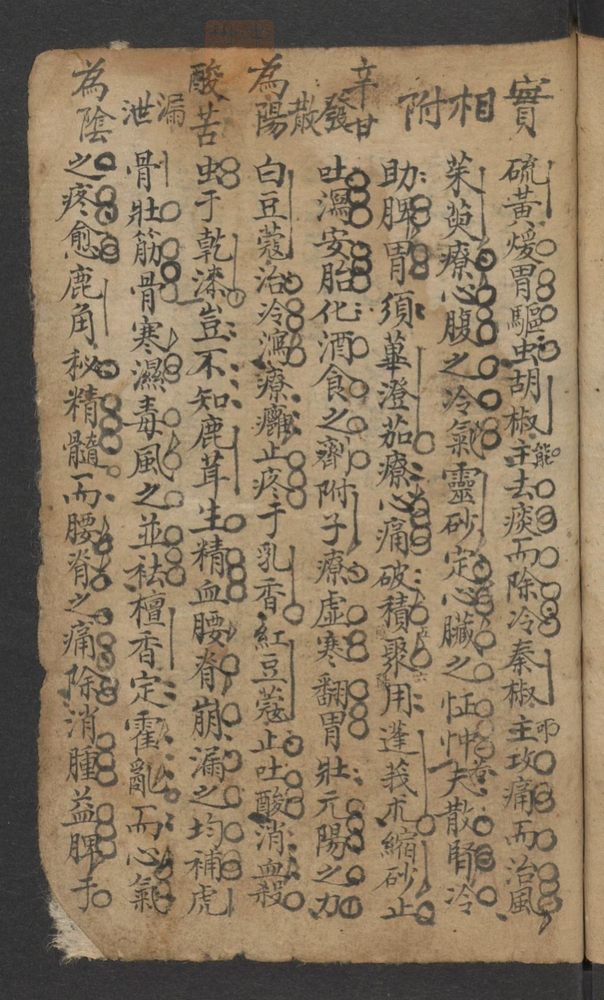 實 相附 辛甘發散 為陽 酸苦 漏泄 為陰
硫黃煖胃驅虫胡椒主去痰而除冷秦椒主攻痛而治風
茱萸療心腹之冷氣靈砂定心臟之怔忡夫散腎冷
助脾胃須蓽澄茄療心痛破積聚用蓬莪朮縮砂止
吐瀉安胎化酒食之劑附子療虛寒翻胃壯元陽之力
白豆蔻治冷瀉療癰止疼于乳香紅豆蔻止吐酸消血殺
虫于乾漆豈不知鹿茸生精血腰脊崩漏之均補虎
骨壯筋骨寒濕毒風之並祛檀香定霍亂而心氣
之疼愈鹿角秘精髓而腰脊之痛除消腫益脾于